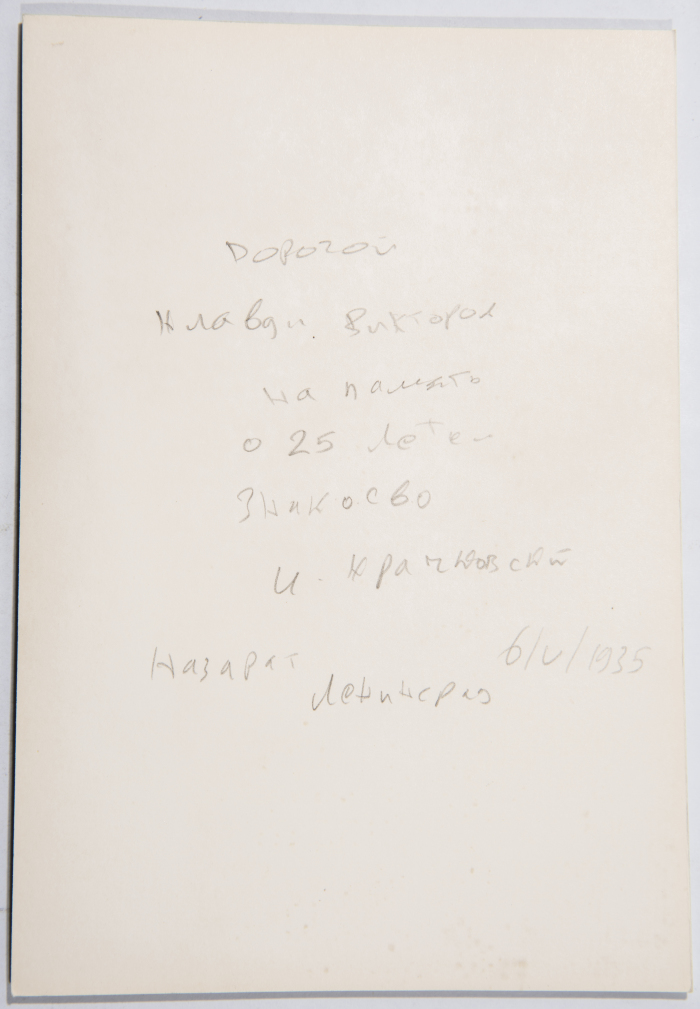 Дорогой
Клавди. Виктора
на память
о 25 Летеи
Знакосво
И. Крачковский
Назарат 6/V/1935
Ленинград